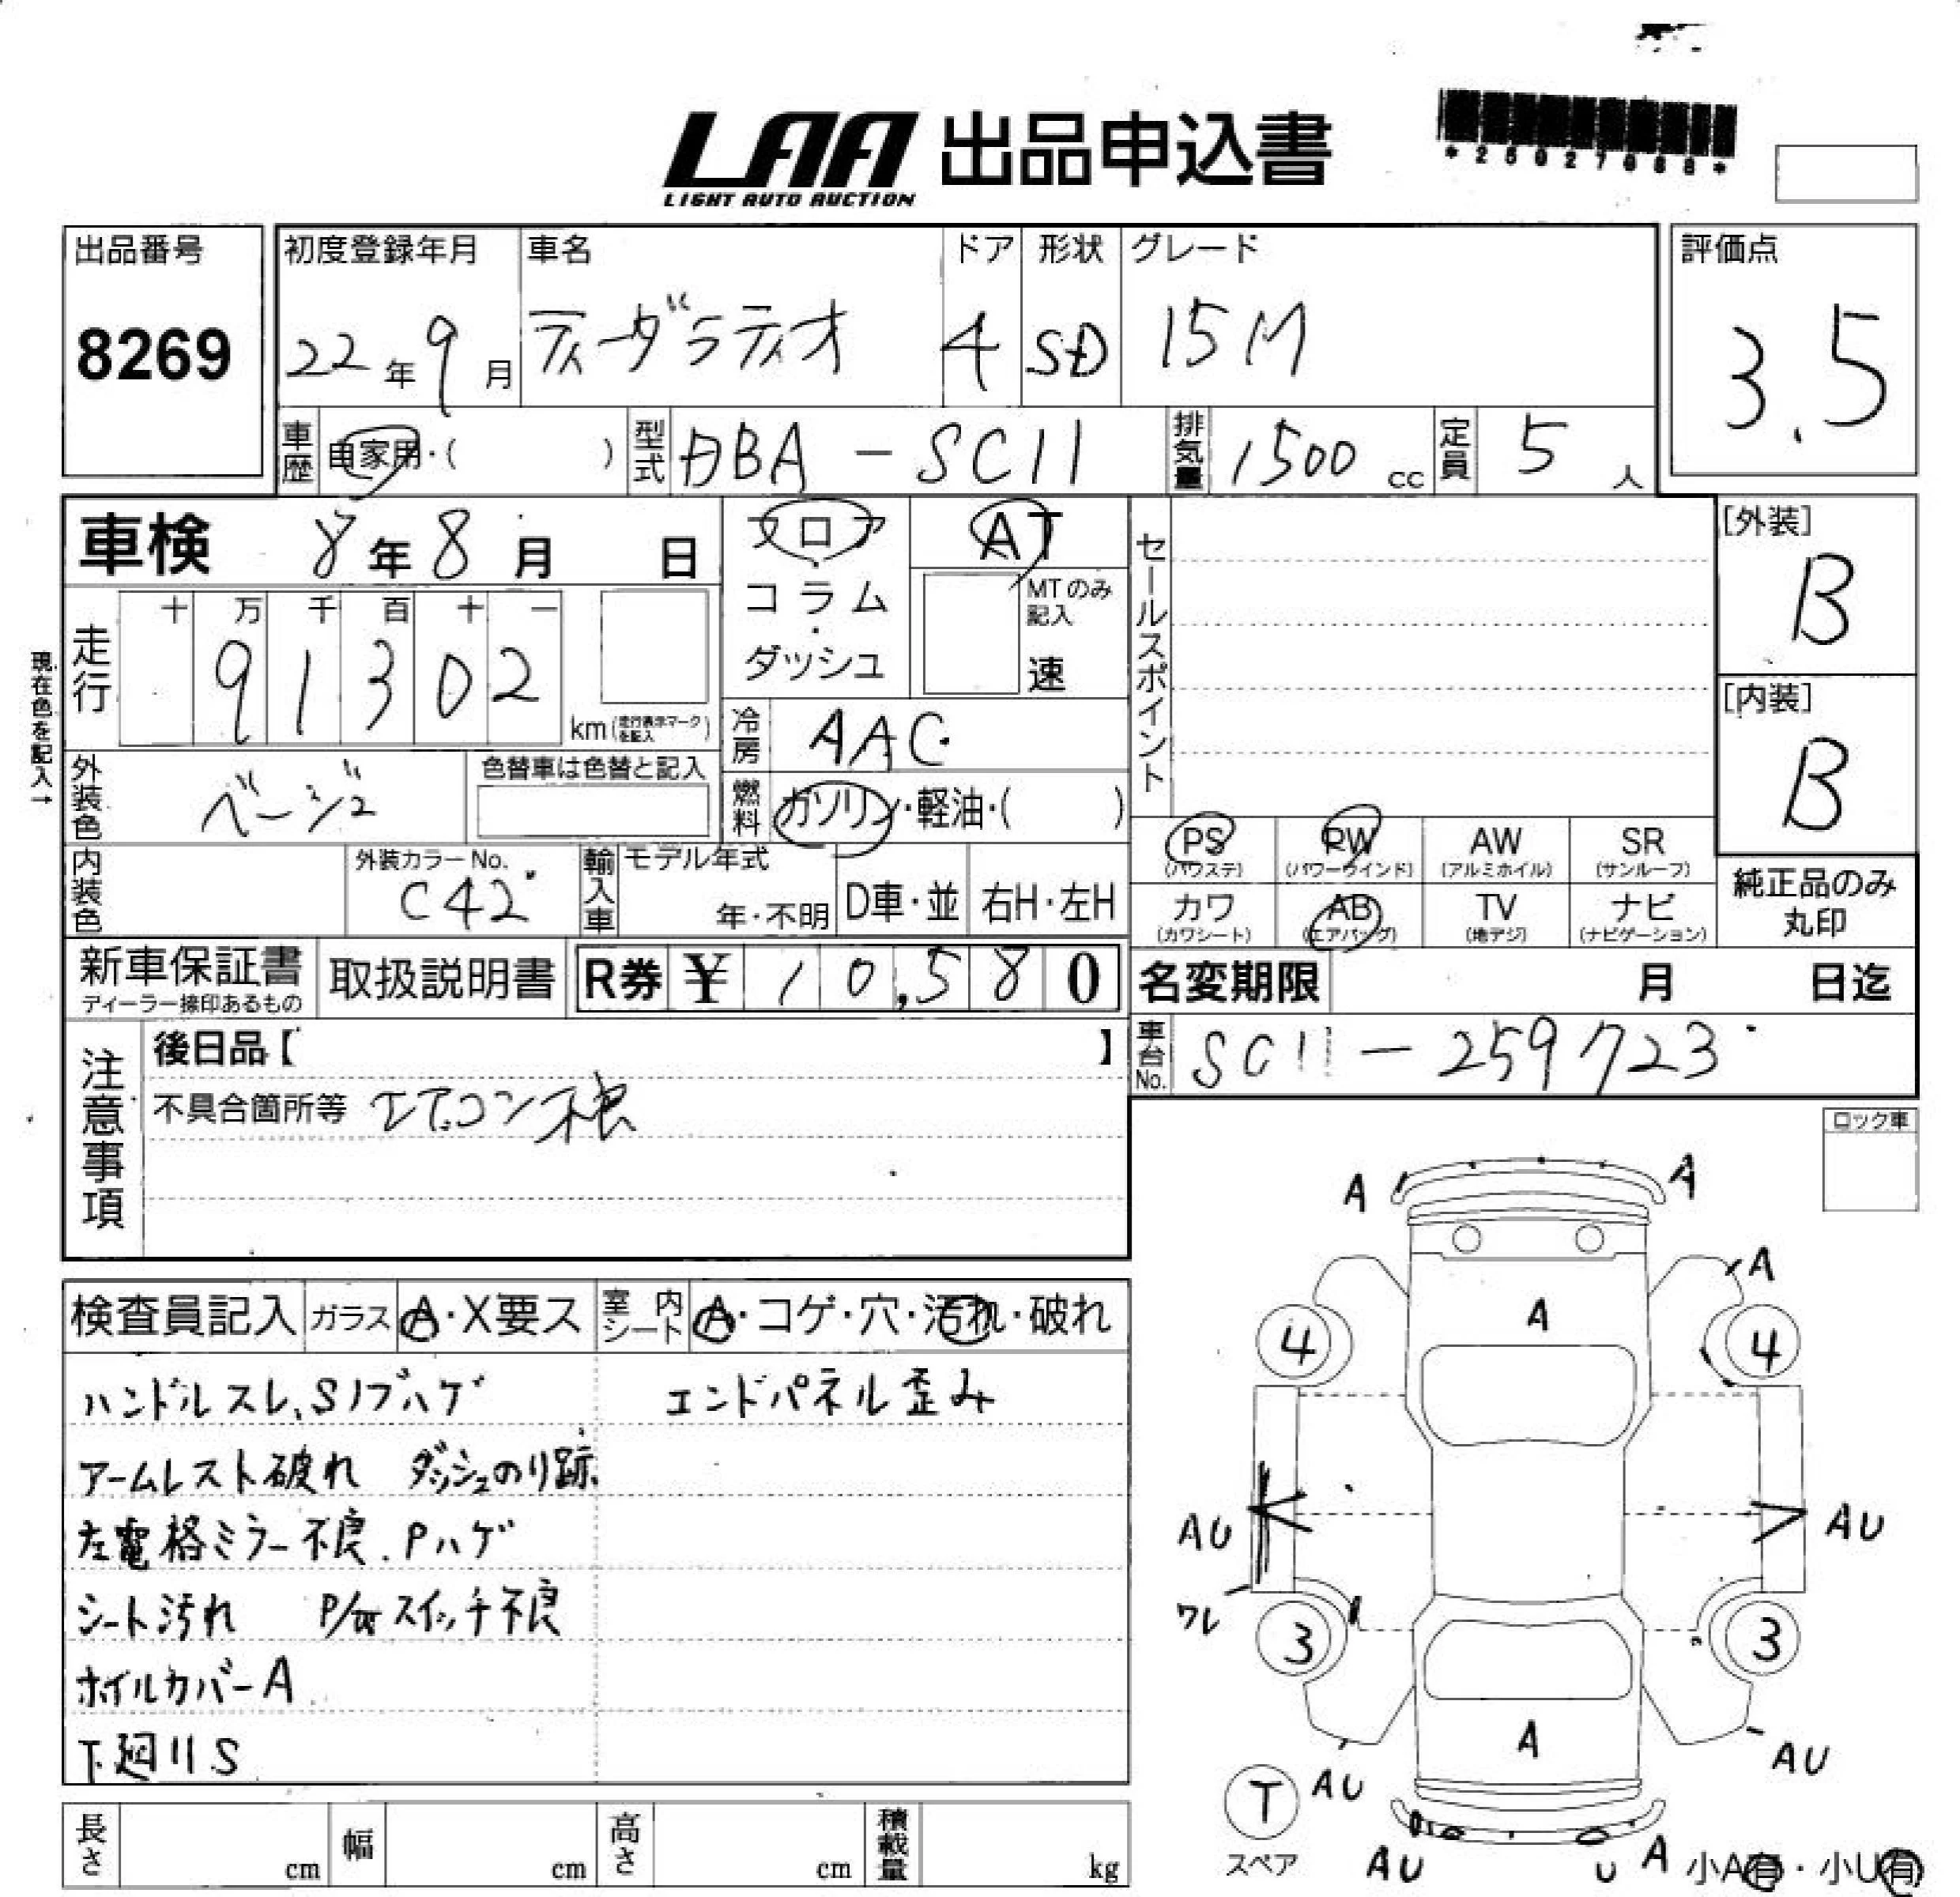 LAA 出品申込書
LIGHT AUTO AUCTION
*25027088*
出品番号
8269
初度登録年月
22年9月
車名
ティーダラティオ
ドア
4
形状
SD
グレード
15M
評価点
3.5
車歴 自家用・( )
型式 DBA-SC11
排気量 1500cc
定員 5人
車検 8年8月 日
フロア・コラム・ダッシュ
AT
MTのみ記入
速
セールスポイント
[外装]
B
[内装]
B
現在色を記入→
走行 十万千百十一
91302
km(走行表示マークを記入)
冷房 AAC
外装色 ベージュ
色替車は色替と記入
燃料 ガソリン・軽油・( )
内装色
外装カラーNo.
C42
輸入車 モデル年式
年・不明
D車・並
右H・左H
PS (パワステ)
PW (パワーウインド)
AW (アルミホイル)
SR (サンルーフ)
カワ (カワシート)
AB (エアバッグ)
TV (地デジ)
ナビ (ナビゲーション)
純正品のみ丸印
新車保証書
ディーラー捺印あるもの
取扱説明書
R券 ¥10,580
名変期限 月 日迄
車台No. SC11-259723
注意事項
後日品【 】
不具合箇所等 エアコン不良
ロック車
検査員記入 ガラス A・X要ス
室内シート A・コゲ・穴・汚れ・破れ
ハンドルスレ、Sノブハゲ
エンドパネル歪み
アームレスト破れ ダッシュのり跡
左電格ミラー不良.Pハゲ
シート汚れ P/W スイッチ不良
ホイルカバーA
下廻りS
A A
A
A
4 4
AU AU
ワレ
3 3
A
AU AU
T
スペア
AU U A
小A有・小U有
長さ cm
幅 cm
高さ cm
積載量 kg